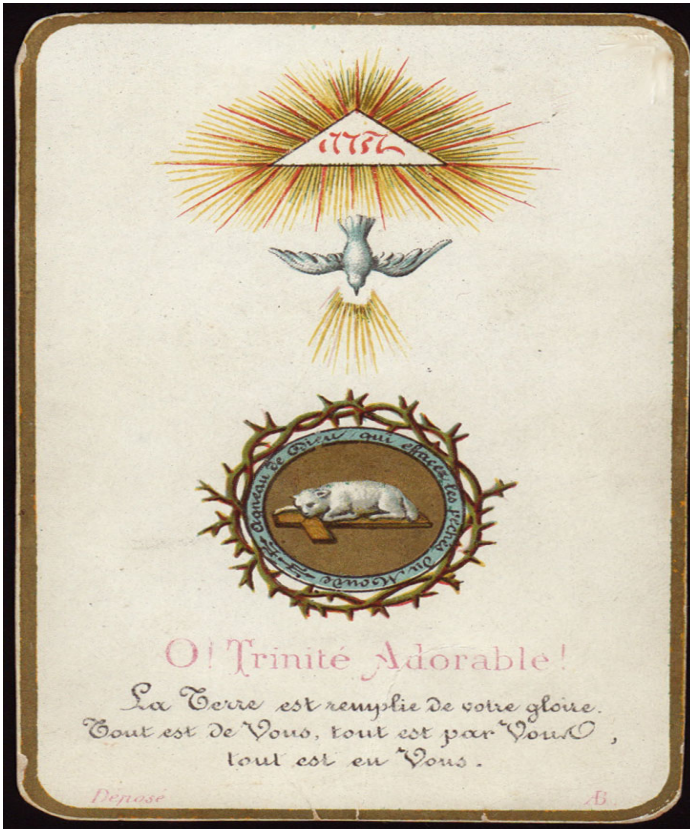 Agneau de Dieu qui effacez les péchés du Monde
O! Trinité Adorable!
La Terre est remplie de votre gloire.
Tout est de Vous, tout est par Vous,
tout est en Vous.
Déposé
AB